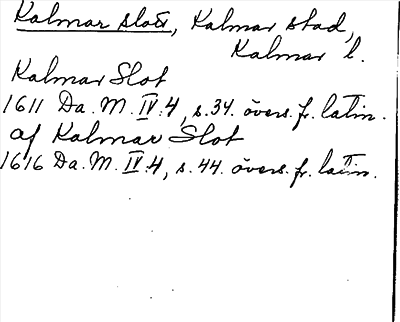 Kalmar slott, Kalmar stad,
Kalmar l.
Kalmar Slot
1611 Da. M. IV:4, s.34. övers. fr. latin.
af Kalmar Slot
1616 Da. M. IV:4, s.44. övers. fr. latin.